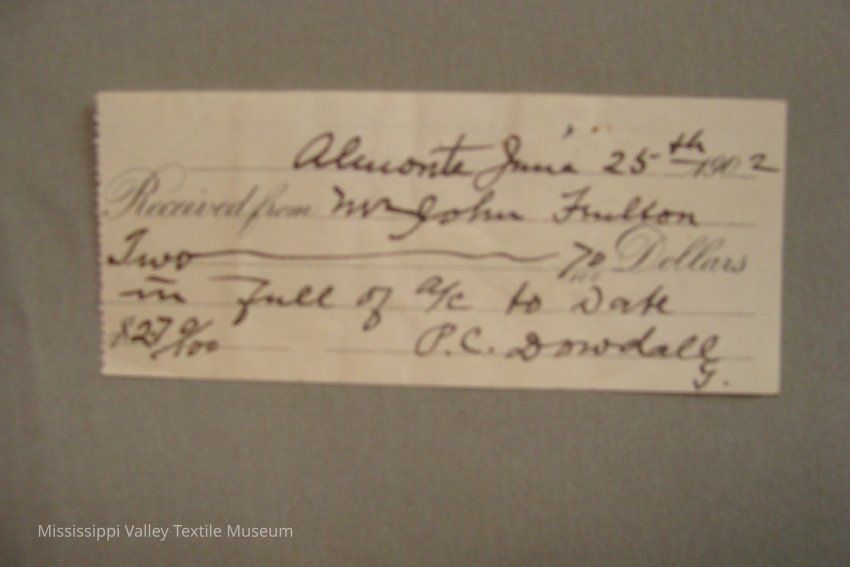 Almonte June 25th 1902
Received from Mr John Fulton
Two 70/100 Dollars
in Full of a/c to Date
$2 70/100 P.C. Dowdall
G.
Mississippi Valley Textile Museum